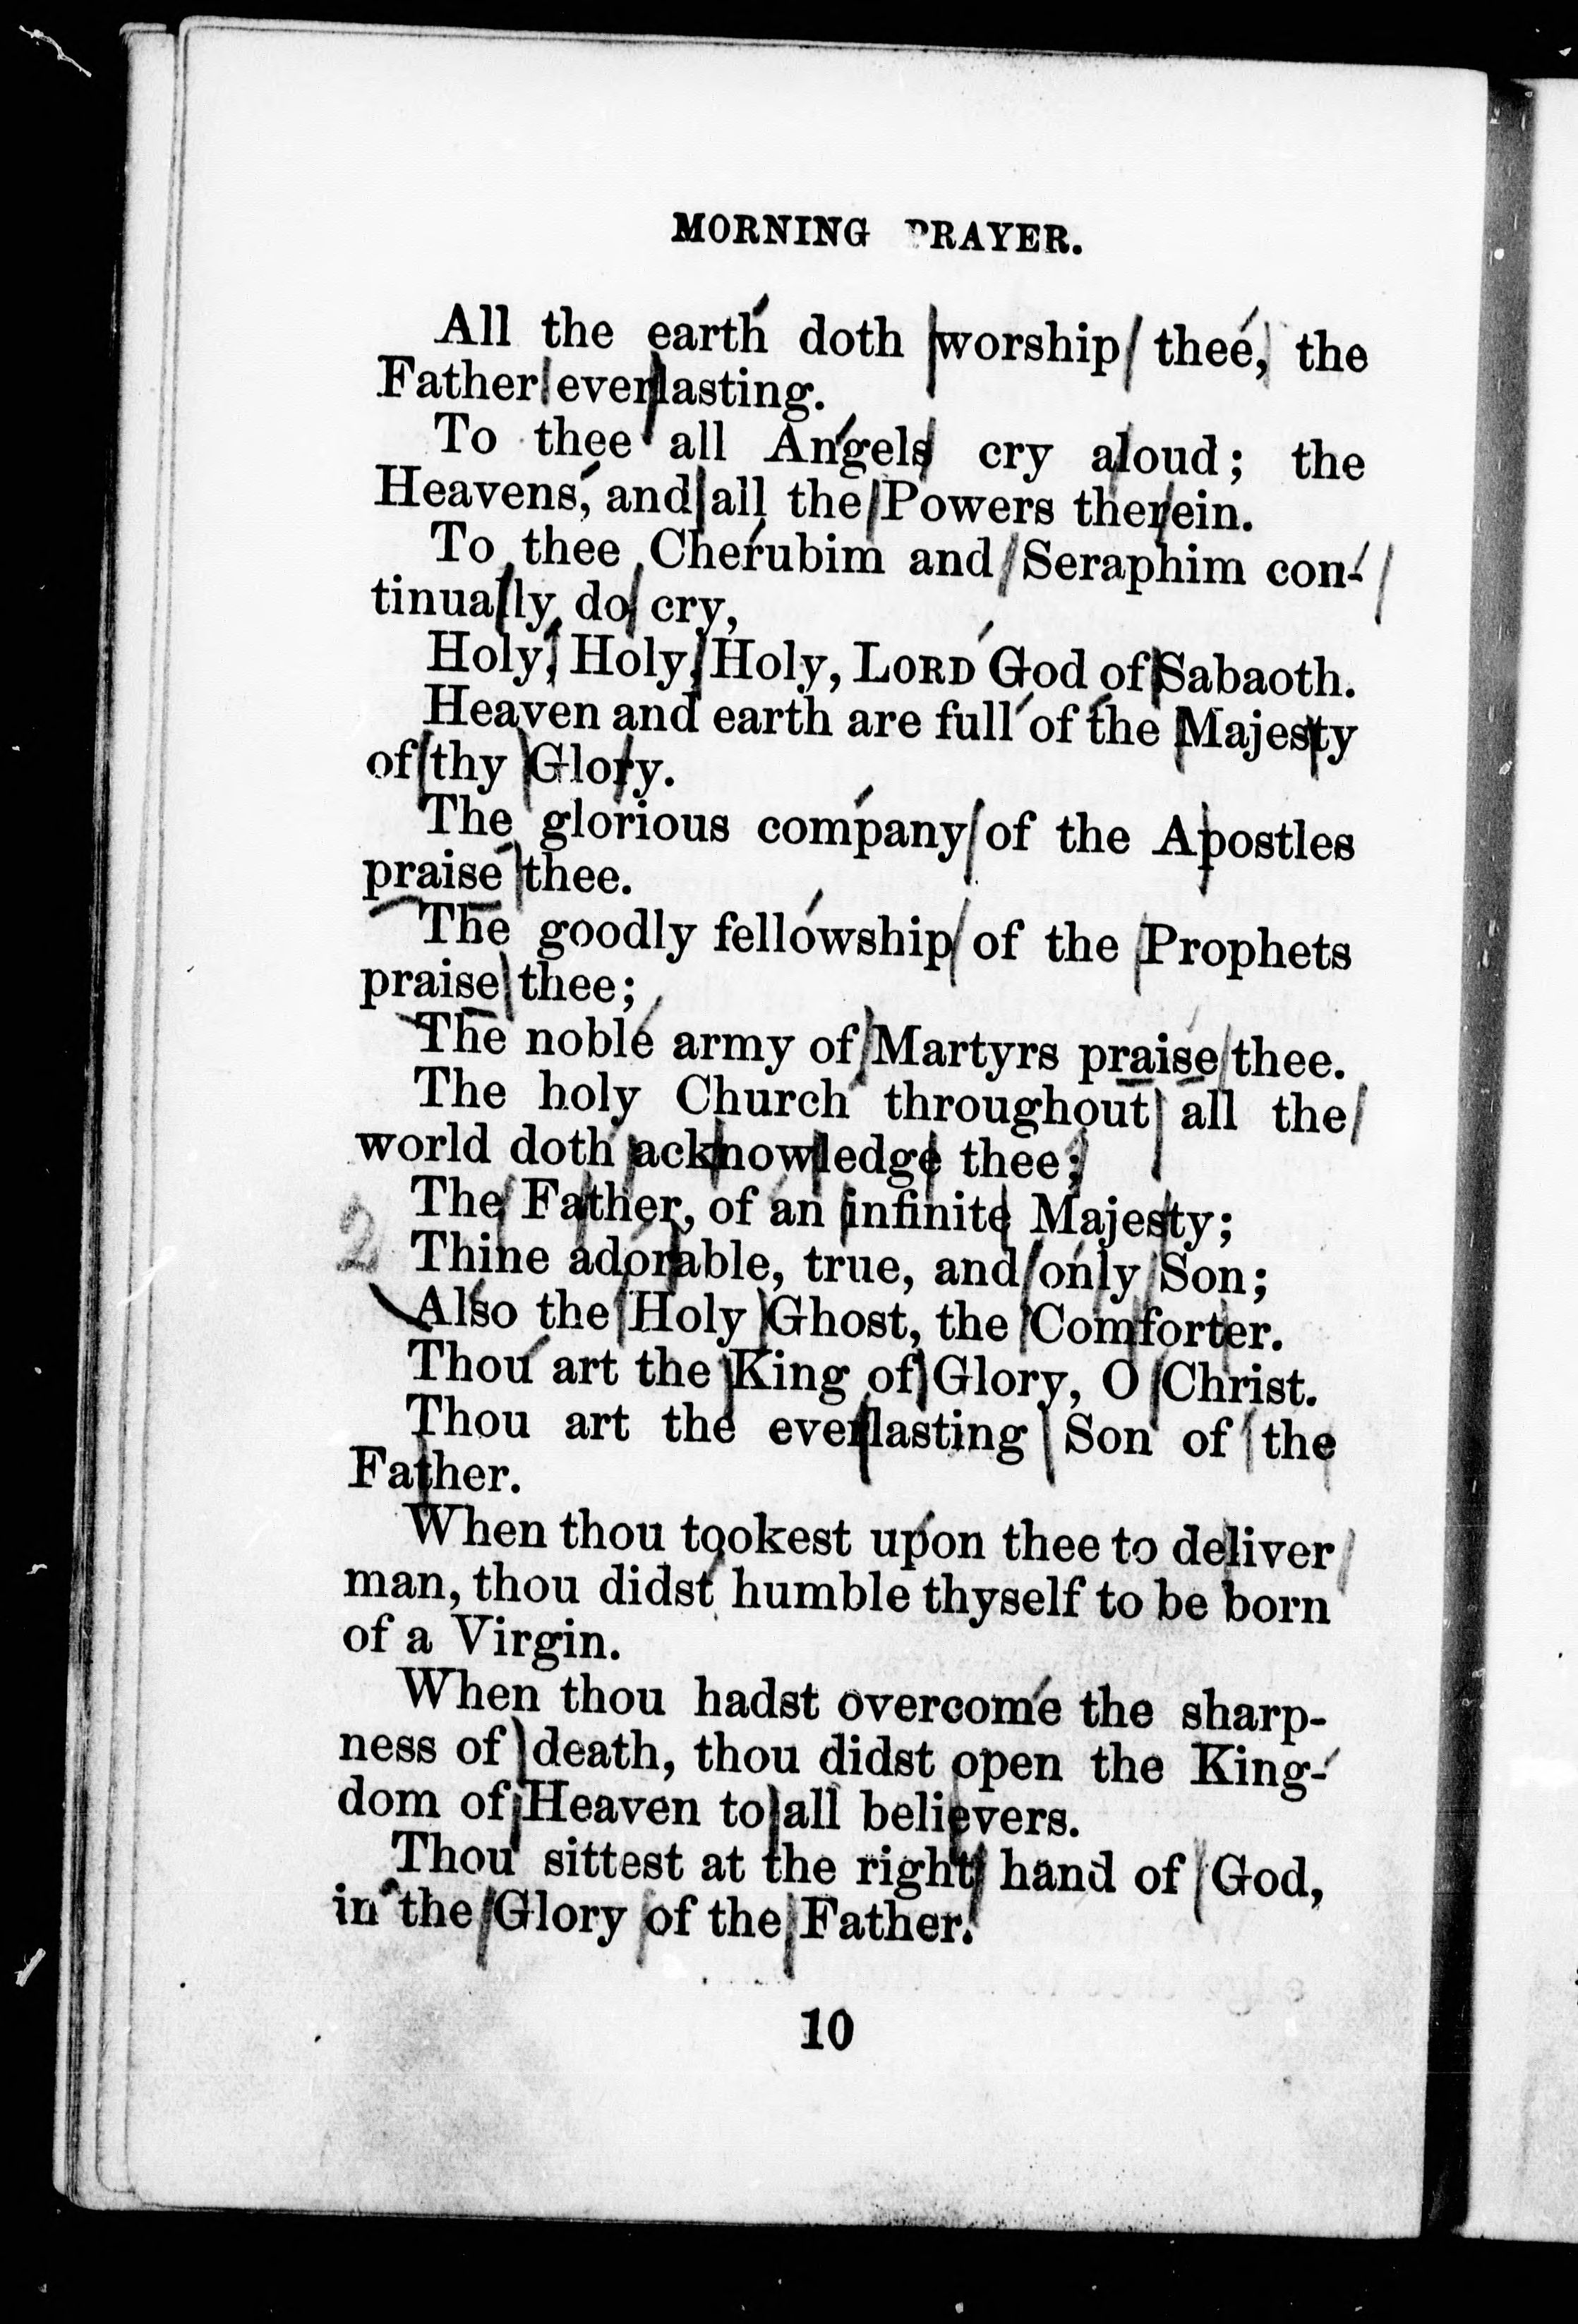 MORNING PRAYER.
All the earth doth worship thee, the
Father everlasting.
To thee all Angels cry aloud; the
Heavens, and all the Powers therein.
To thee Cherubim and Seraphim con-
tinually do cry,
Holy, Holy, Holy, LORD God of Sabaoth.
Heaven and earth are full of the Majesty
of thy Glory.
The glorious company of the Apostles
praise thee.
The goodly fellowship of the Prophets
praise thee;
The noble army of Martyrs praise thee.
The holy Church throughout all the
world doth acknowledge thee;
The Father, of an infinite Majesty;
2 Thine adorable, true, and only Son;
Also the Holy Ghost, the Comforter.
Thou art the King of Glory, O Christ.
Thou art the everlasting Son of the
Father.
When thou tookest upon thee to deliver
man, thou didst humble thyself to be born
of a Virgin.
When thou hadst overcome the sharp-
ness of death, thou didst open the King-
dom of Heaven to all believers.
Thou sittest at the right hand of God,
in the Glory of the Father.
10